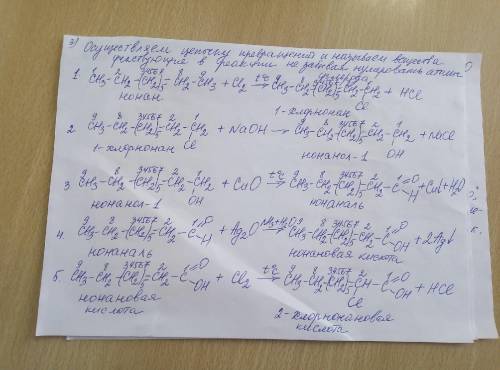 3) Осуществляем цепочку превращений и называем вещества
участвующие в реакции не забывая нумеровать атомы
углерода
9 2 34567 8
1. CH₃-CH₂-(CH₂)₅-CH₂-CH₃ + Cl₂ t°C→ CH₃-CH₂-(CH₂)₅-CH₂-CH₂ + HCl
нонан 1-хлорнонан Cl
9 8 34567 2 1
2. CH₃-CH₂-(CH₂)₅-CH₂-CH₂ + NaOH → CH₃-CH₂-(CH₂)₅-CH₂-CH₂ + NaCl
1-хлорнонан Cl нонанол-1 OH
9 8 34567 2 1
3 CH₃-CH₂-(CH₂)₅-CH₂-CH₂ + CuO t°C→ CH₃-CH₂-(CH₂)₅-CH₂-C=O H + Cu↓+H₂O
нонанол-1 OH нонаналь
9 8 34567 2 1
4. CH₃-CH₂-(CH₂)₅-CH₂-C=O H + Ag₂O NH₃+H₂O→ CH₃-CH₂-(CH₂)₅-CH₂-C=O OH + 2Ag↓
нонаналь нонановая кислота
9 8 34567 2 1
5. CH₃-CH₂-(CH₂)₅-CH₂-C=O OH + Cl₂ t°C→ CH₃-CH₂-(CH₂)₅-CH-C=O OH + HCl
нонановая Cl
кислота 2-хлорнонановая
кислота